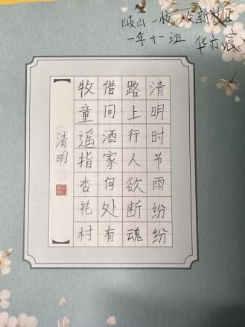 岐山一
校区
一年十一班
清明时节雨纷纷
路上行人欲断魂
借问酒家何处有
牧童遥指杏花村
清明